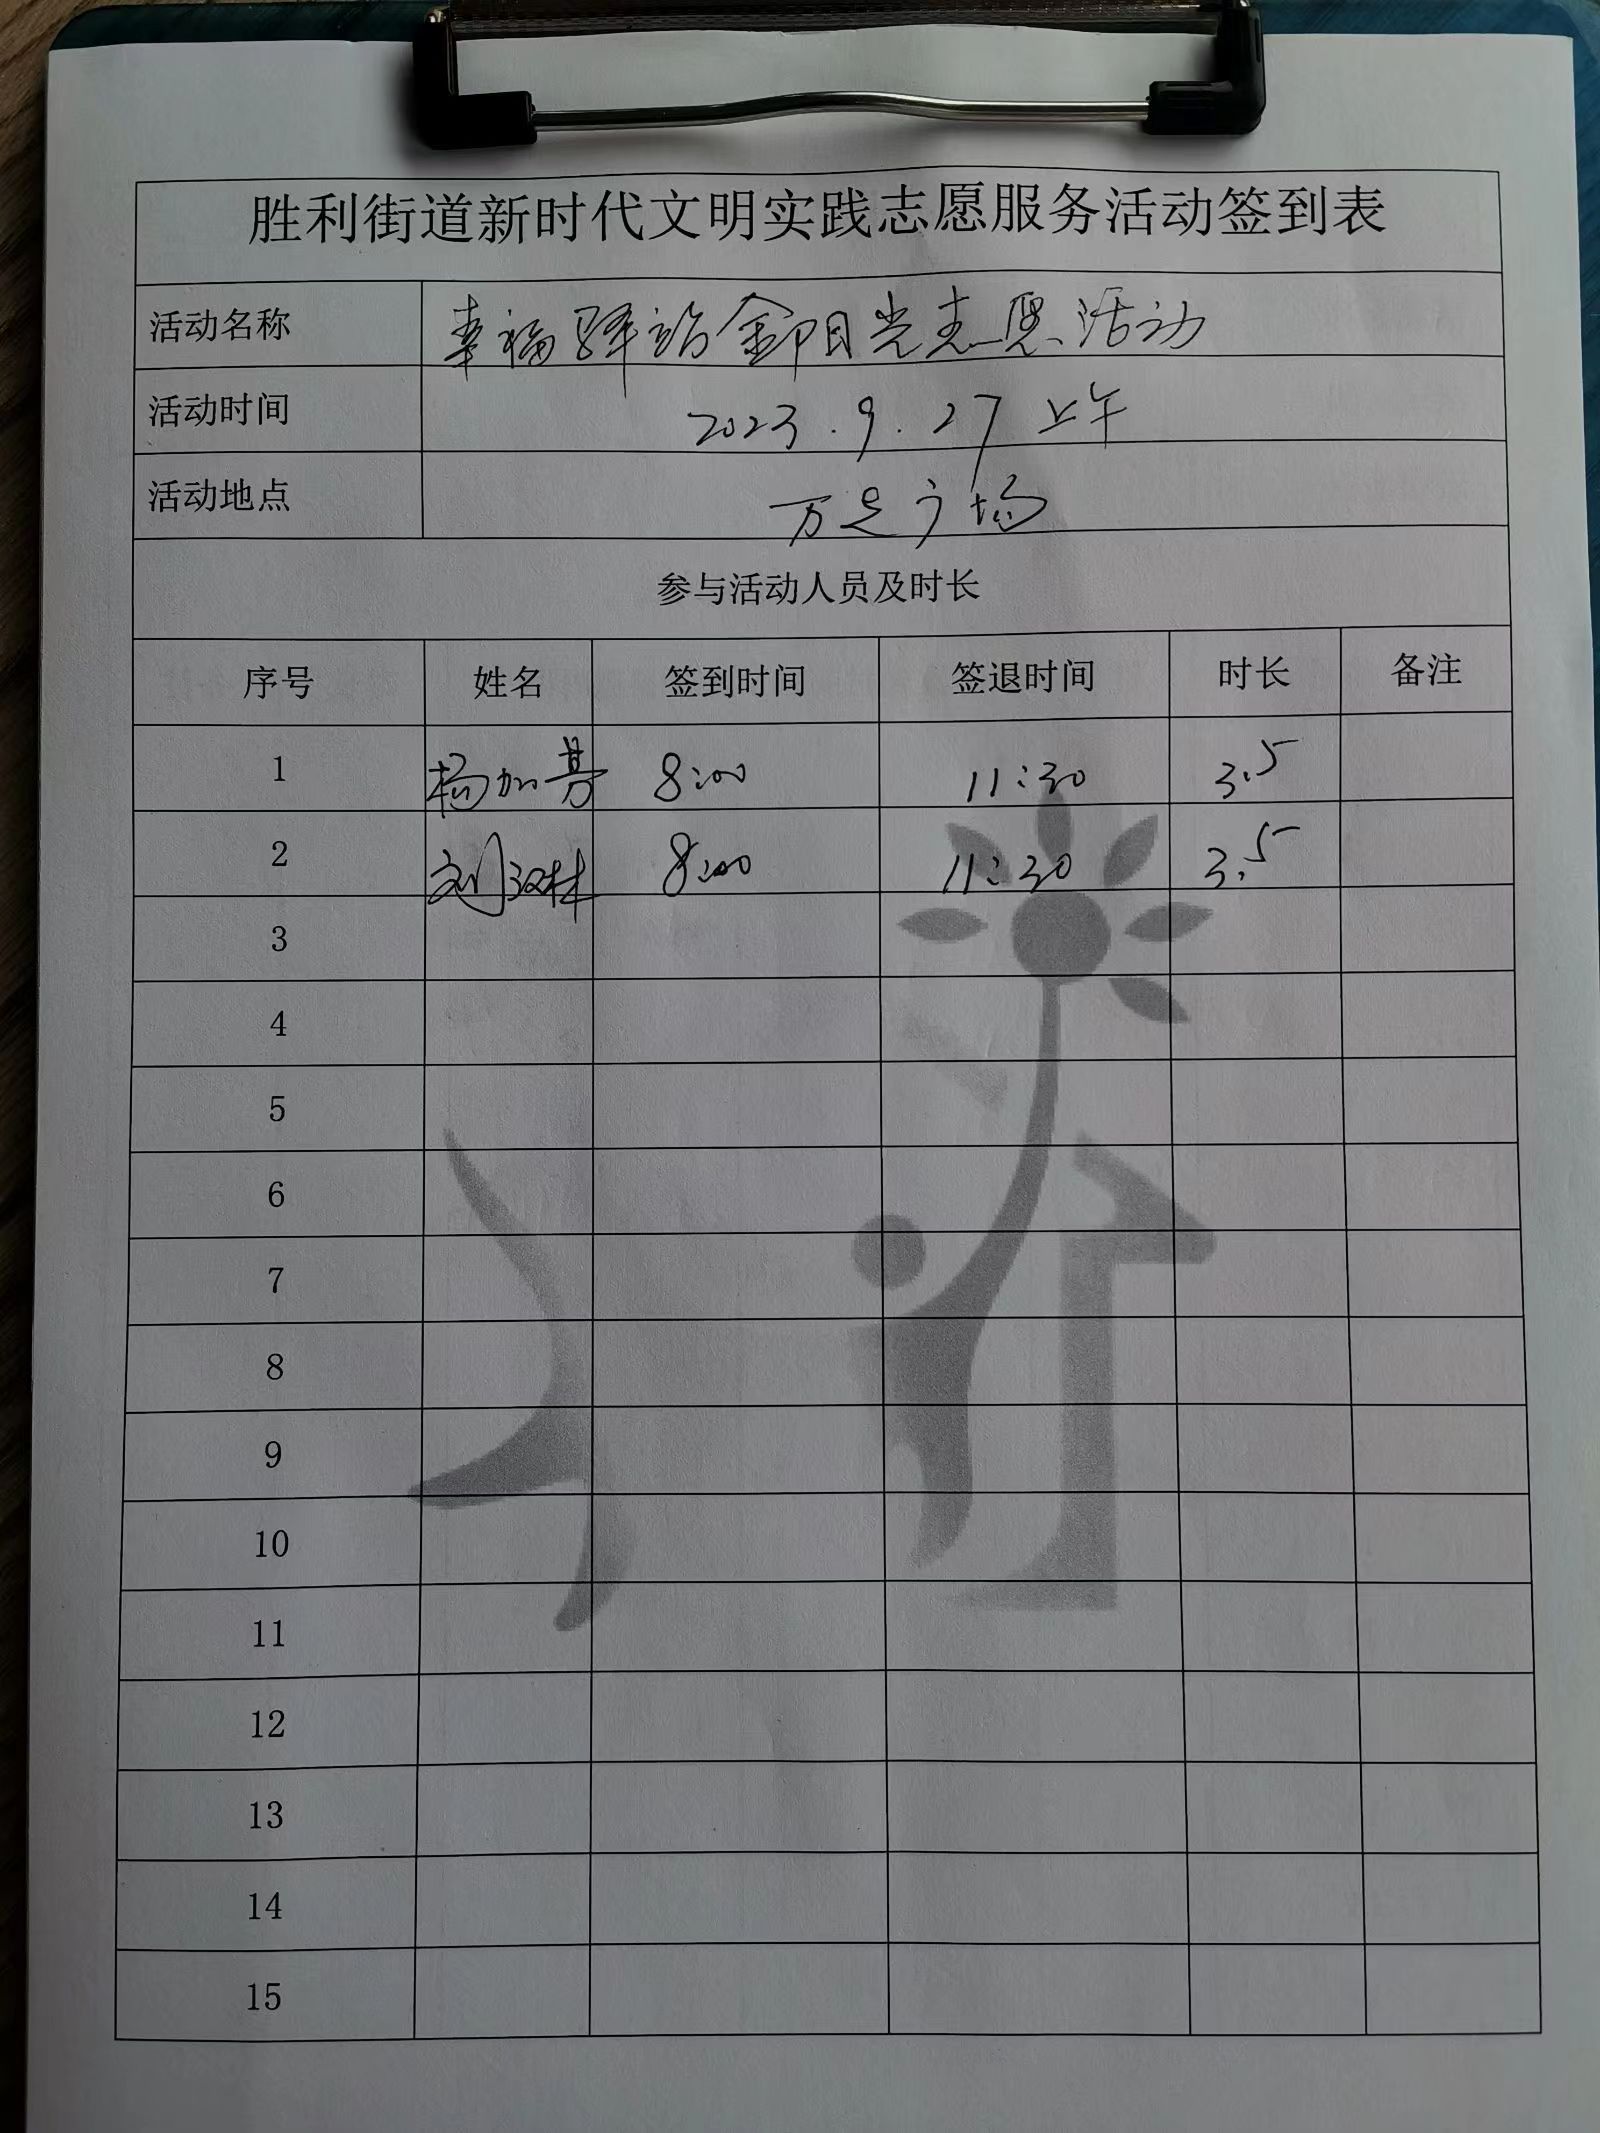 胜利街道新时代文明实践志愿服务活动签到表
活动名称 幸福驿站金阳光志愿活动
活动时间 2023.9.27 上午
活动地点 万达广场
参与活动人员及时长
序号 姓名 签到时间 签退时间 时长 备注
1 杨加芳 8:00 11:30 3.5
2 刘汉林 8:00 11:30 3.5
3
4
5
6
7
8
9
10
11
12
13
14
15